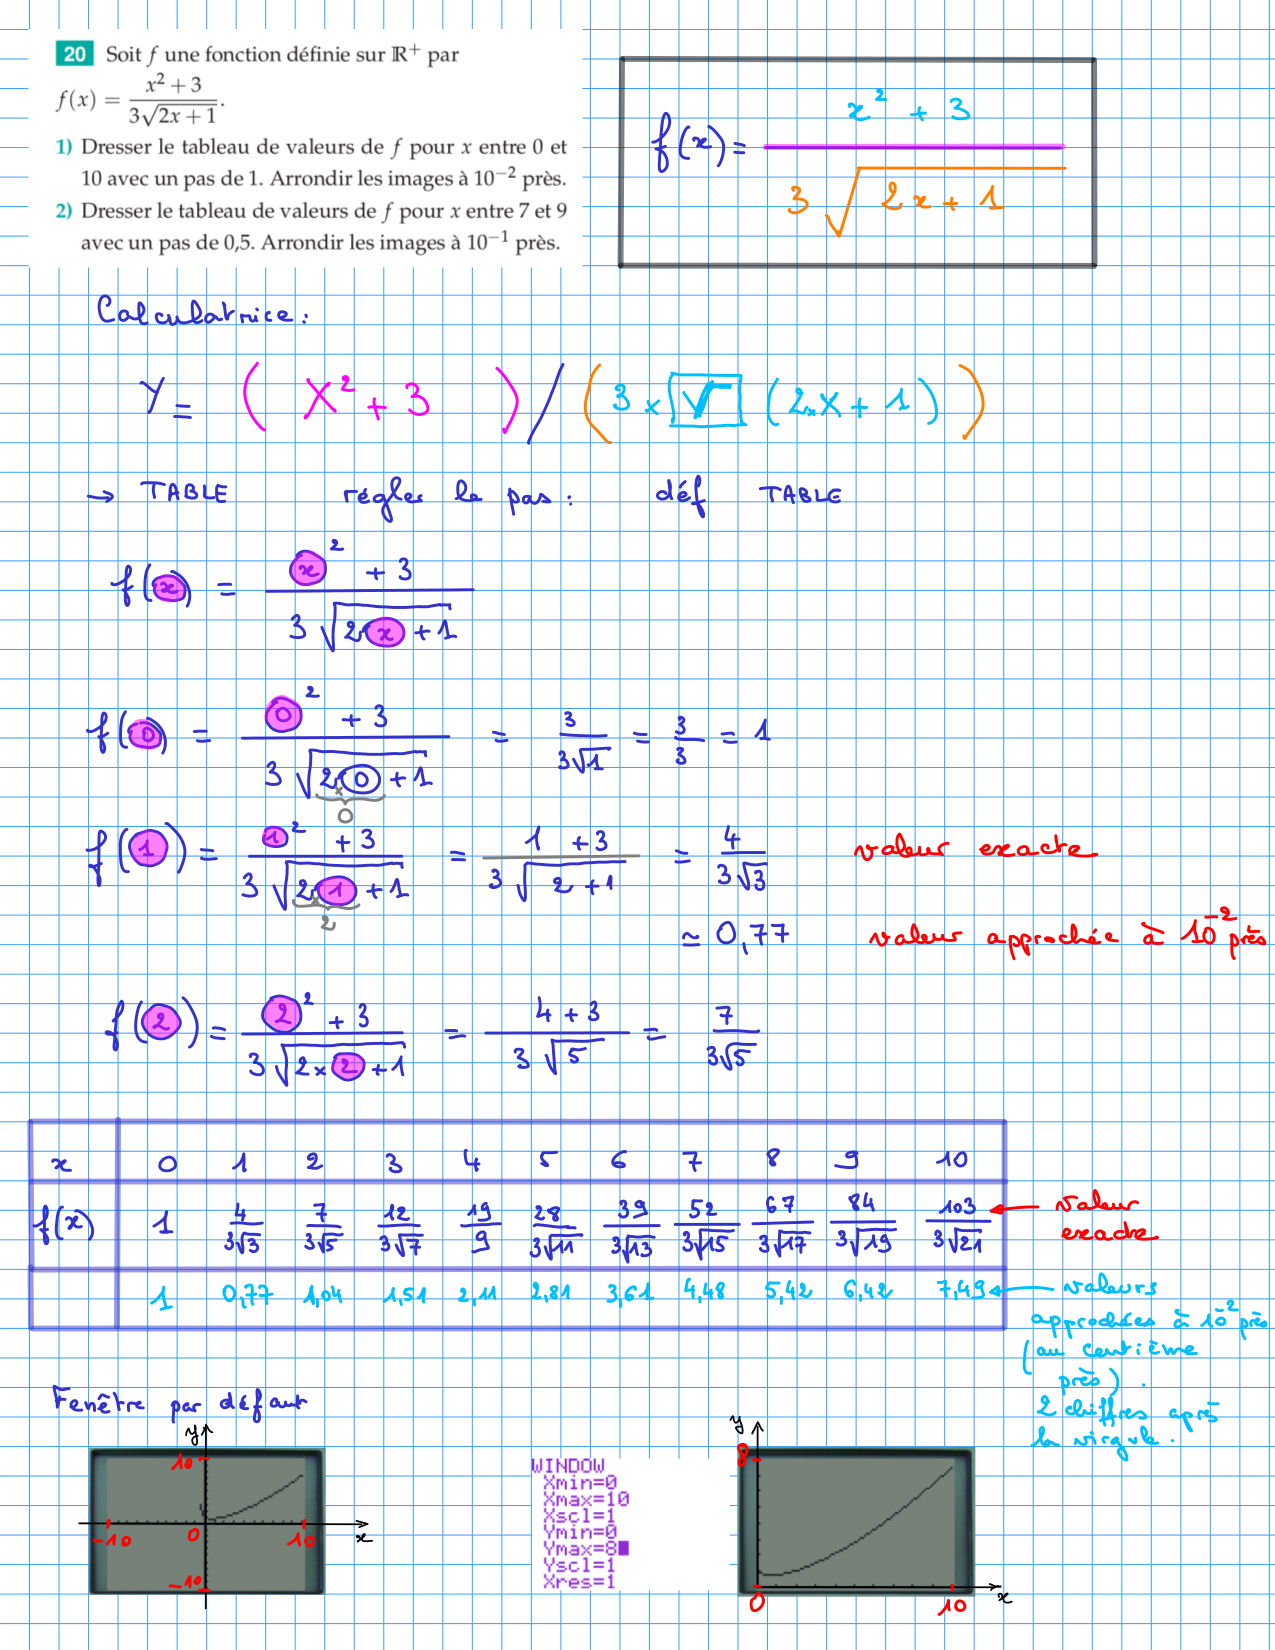 20 Soit f une fonction définie sur ℝ⁺ par
f(x) = (x² + 3)/(3√(2x + 1)).
1) Dresser le tableau de valeurs de f pour x entre 0 et
10 avec un pas de 1. Arrondir les images à 10⁻² près.
2) Dresser le tableau de valeurs de f pour x entre 7 et 9
avec un pas de 0,5. Arrondir les images à 10⁻¹ près.
f(x) = (x² + 3)/(3√(2x + 1))
Calculatrice :
Y = ( X² + 3 ) / ( 3 × √ (2×X + 1) )
→ TABLE régler le pas : déf TABLE
f(x) = (x² + 3)/(3√(2×x + 1))
f(0) = (0² + 3)/(3√(2×0 + 1)) = 3/(3√1) = 3/3 = 1
0
f(1) = (1² + 3)/(3√(2×1 + 1)) = (1 + 3)/(3√(2 + 1)) = 4/(3√3) valeur exacte
2
≃ 0,77 valeur approchée à 10⁻² près
f(2) = (2² + 3)/(3√(2×2 + 1)) = (4 + 3)/(3√5) = 7/(3√5)
x 0 1 2 3 4 5 6 7 8 9 10
f(x) 1 4/(3√3) 7/(3√5) 12/(3√7) 19/9 28/(3√11) 39/(3√13) 52/(3√15) 67/(3√17) 84/(3√19) 103/(3√21) ← valeur
exacte
1 0,77 1,04 1,51 2,11 2,81 3,61 4,48 5,42 6,42 7,49 ← valeurs
approchées à 10⁻² près
(au centième
près).
2 chiffres après
la virgule.
Fenêtre par défaut
y
10
-10
0
10
x
-10
WINDOW
Xmin=0
Xmax=10
Xscl=1
Ymin=0
Ymax=8
Yscl=1
Xres=1
y
8
0
10
x